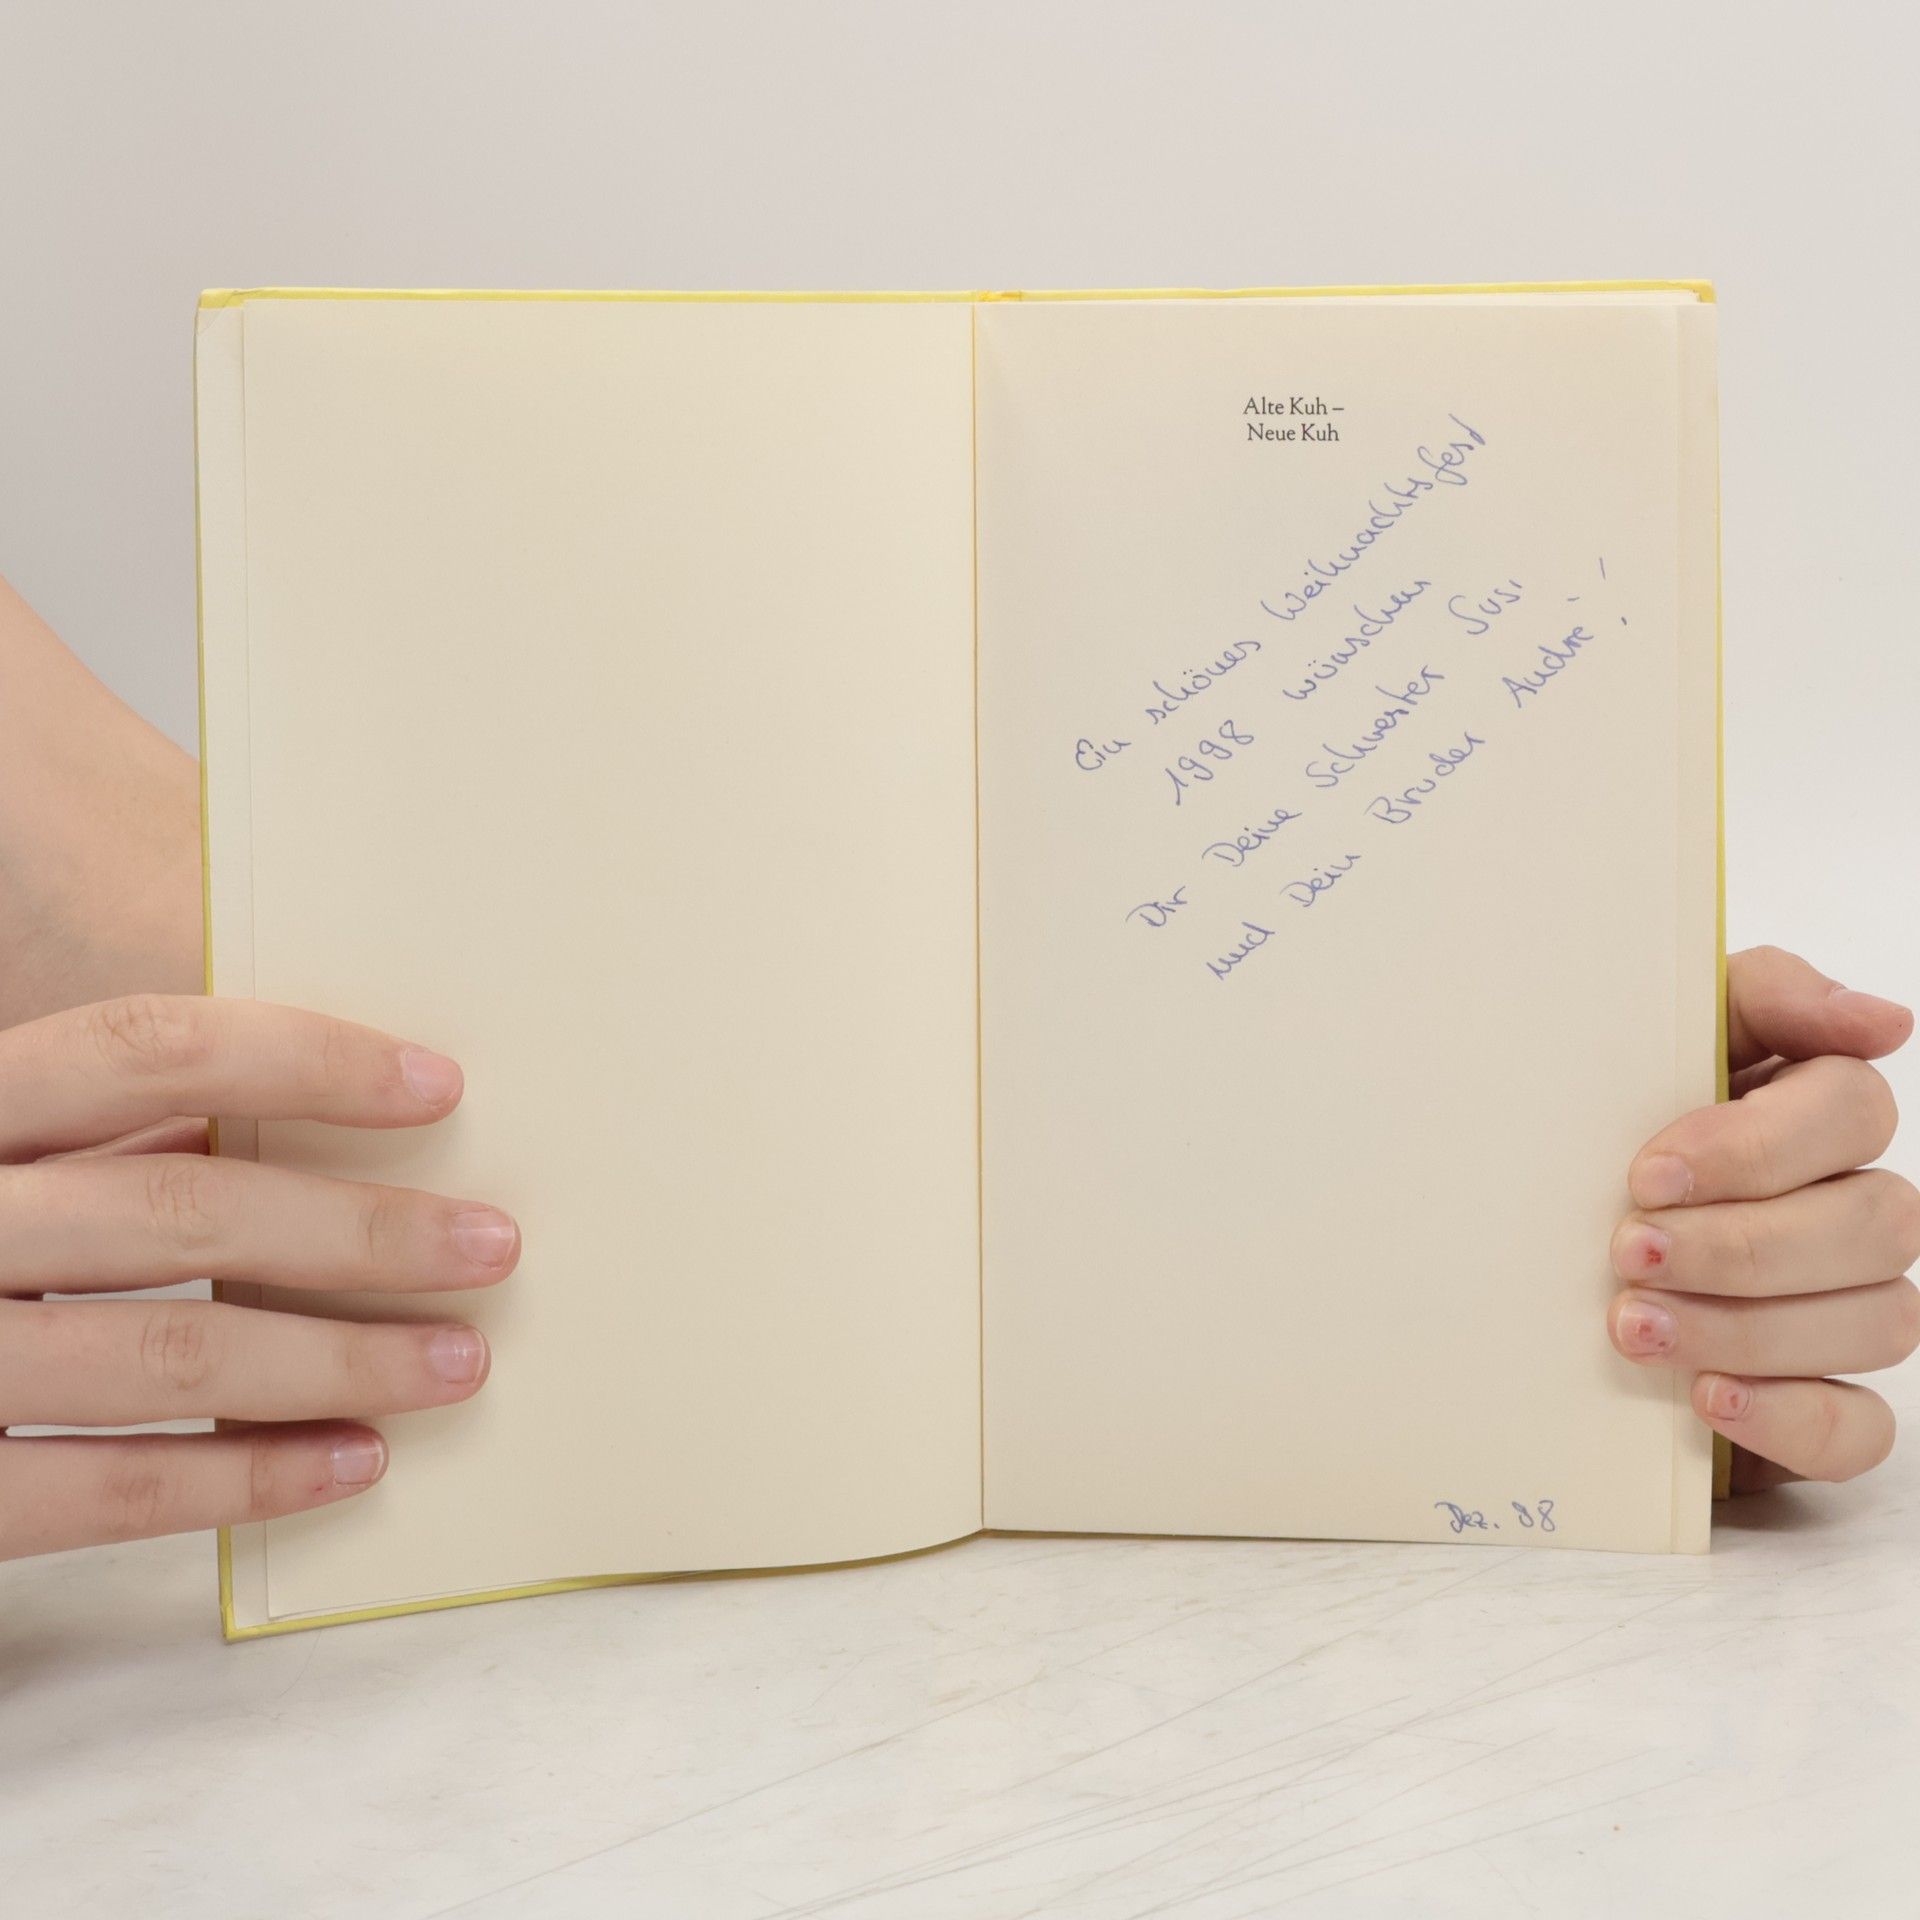 Alte Kuh –
Neue Kuh
Ein schönes Weihnachtsfest
1998 wünschen
Dir Deine Schwester Susi
und Dein Bruder André !
Dez. 98